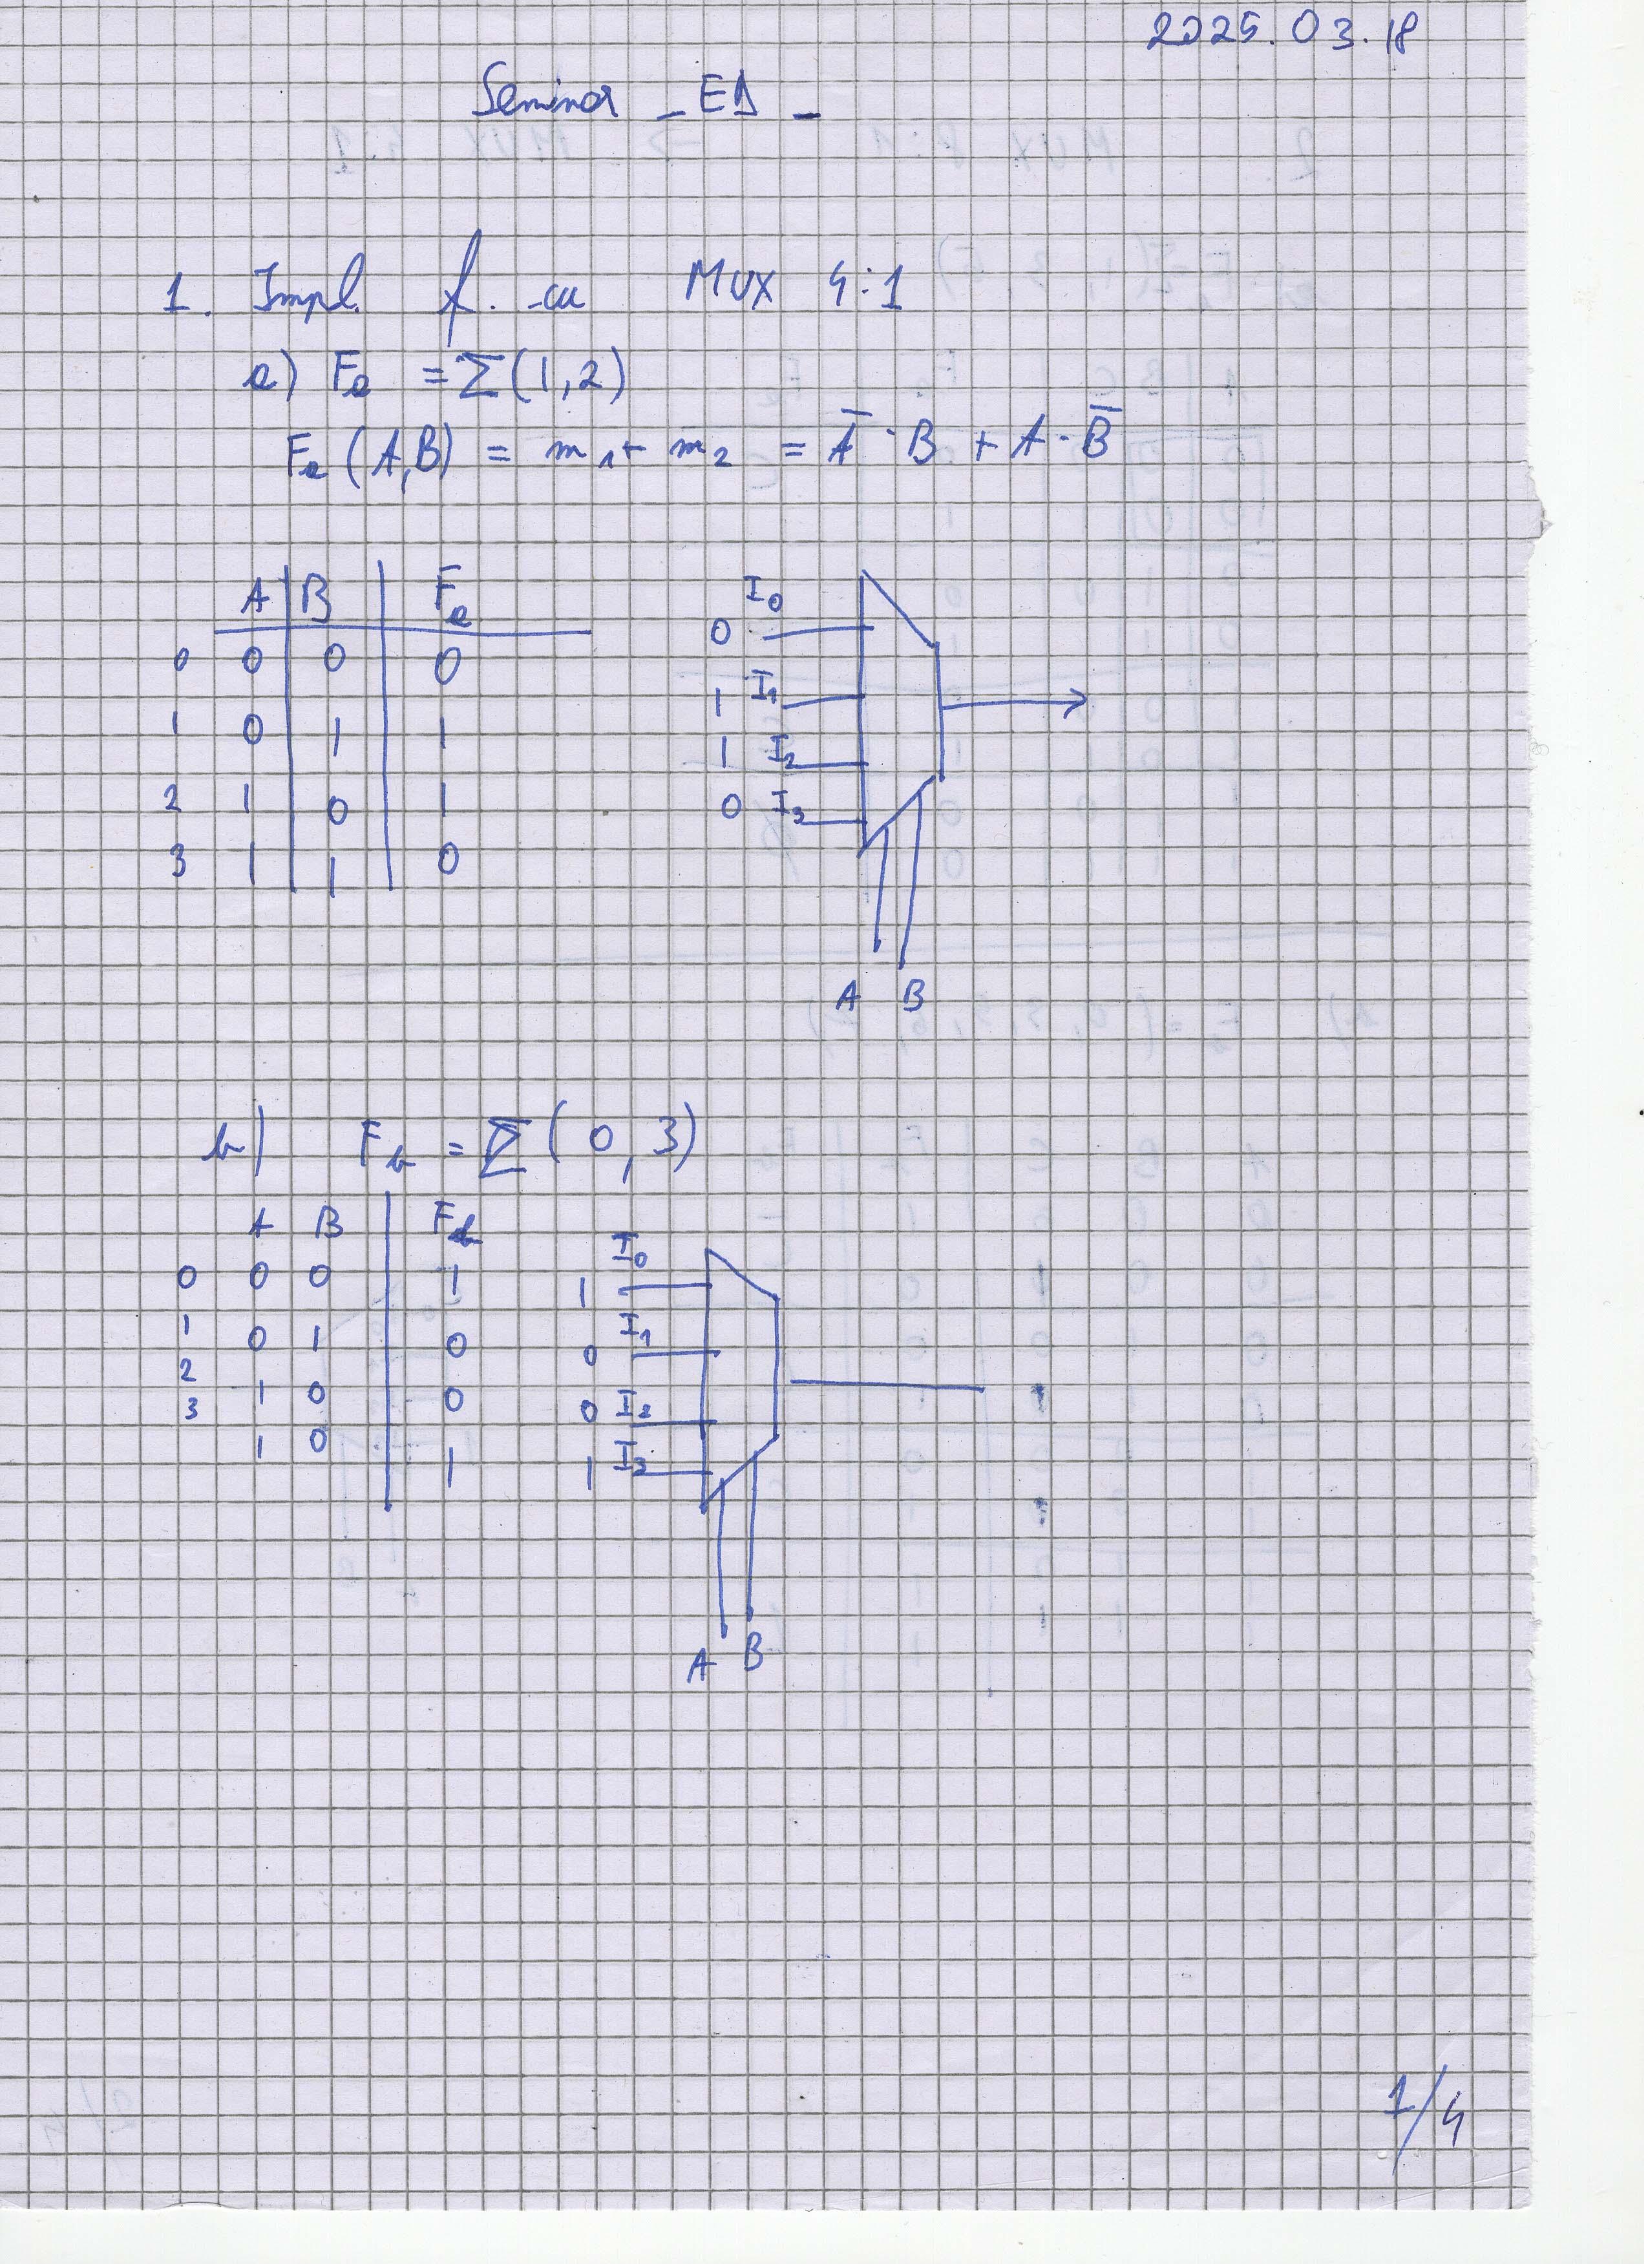 2025.03.18
Seminar - ED -
1. Impl. f. cu MUX 4:1
a) Fa = Σ(1,2)
Fa (A,B) = m1 + m2 = A̅ · B + A · B̅
A B Fa
0 0 0 0
1 0 1 1
2 1 0 1
3 1 1 0
0 I0
1 I1
1 I2
0 I3
A B
b) Fb = Σ(0,3)
A B Fb
0 0 0 1
1 0 1 0
2 1 0 0
3 1 0 1
1 I0
0 I1
0 I2
1 I3
A B
1/4